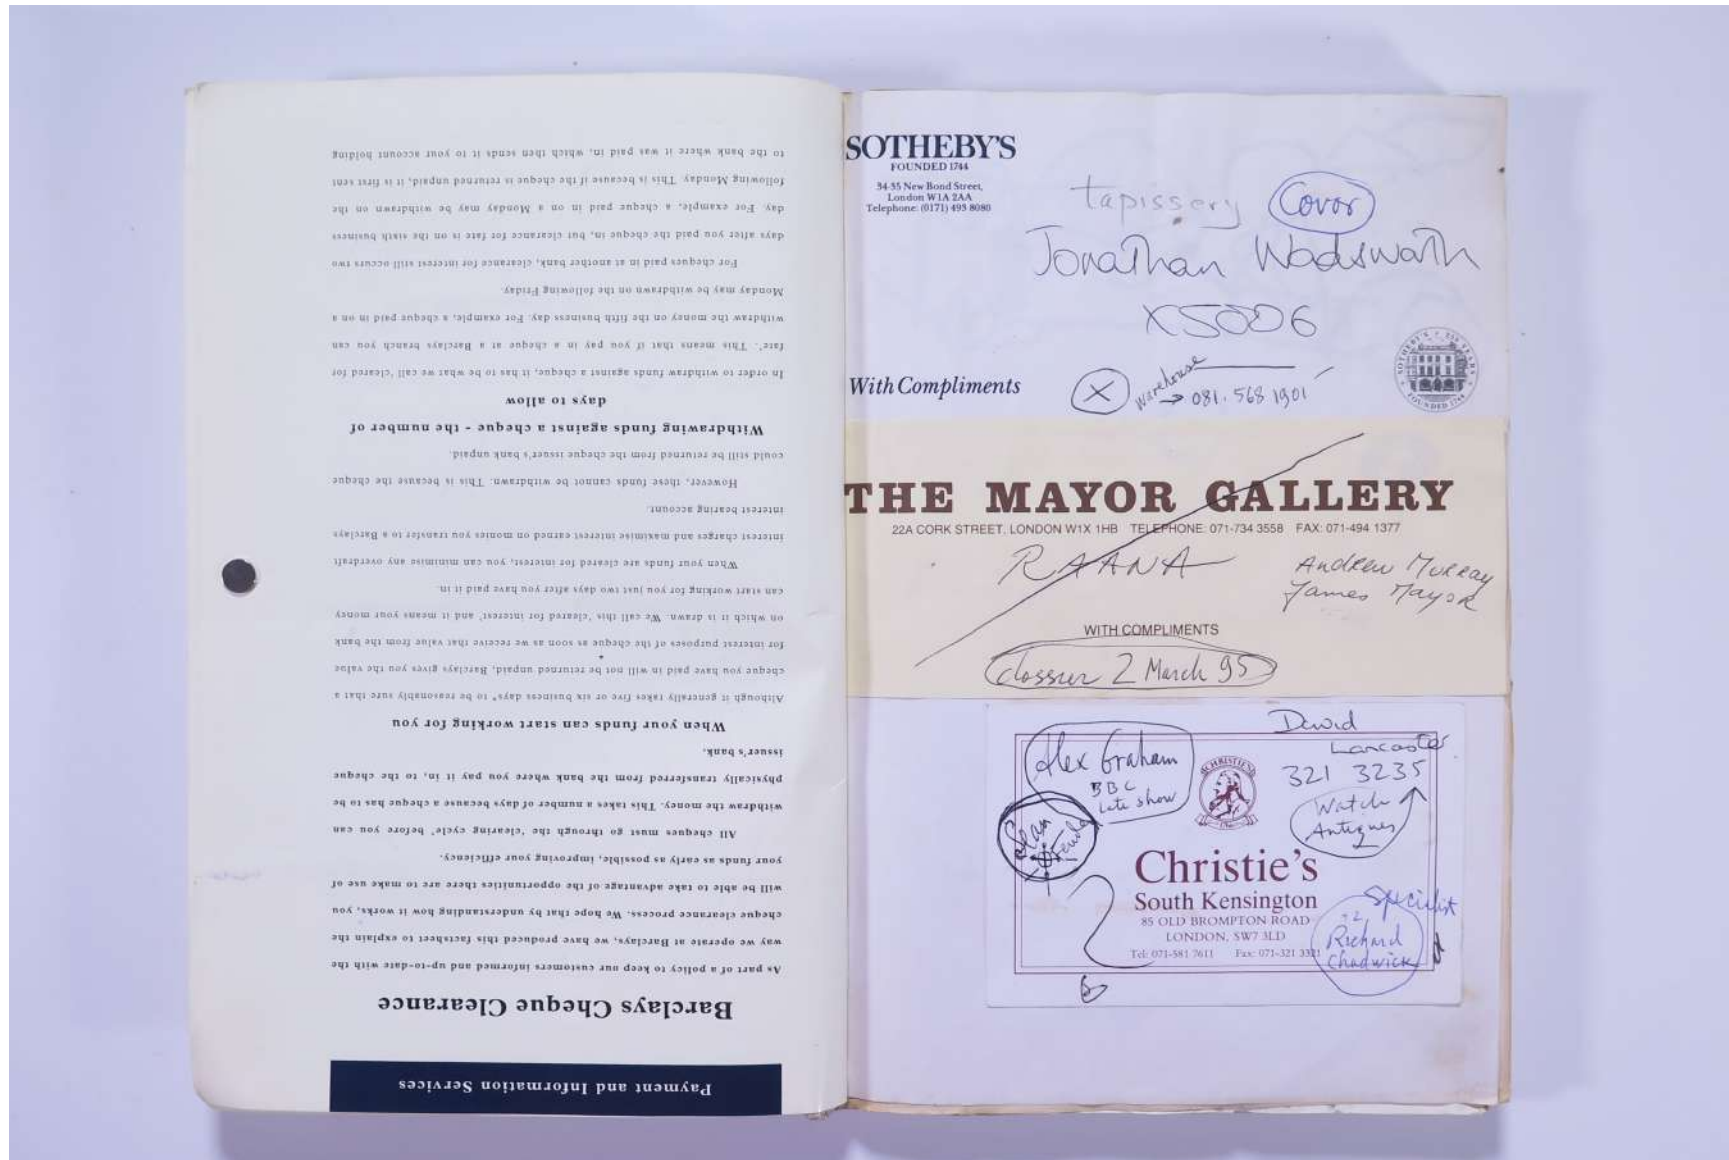 Payment and Information Services
Barclays Cheque Clearance
As part of a policy to keep our customers informed and up-to-date with the
way we operate at Barclays, we have produced this factsheet to explain the
cheque clearance process. We hope that by understanding how it works, you
will be able to take advantage of the opportunities there are to make use of
your funds as early as possible, improving your efficiency.
All cheques must go through the 'clearing cycle' before you can
withdraw the money. This takes a number of days because a cheque has to be
physically transferred from the bank where you pay it in, to the cheque
issuer's bank.
When your funds can start working for you
Although it generally takes five or six business days* to be reasonably sure that a
cheque you have paid in will not be returned unpaid, Barclays gives you the value
for interest purposes of the cheque as soon as we receive that value from the bank
on which it is drawn. We call this 'cleared for interest' and it means your money
can start working for you just two days after you have paid it in.
When your funds are cleared for interest, you can minimise any overdraft
interest charges and maximise interest earned on monies you transfer to a Barclays
interest bearing account.
However, these funds cannot be withdrawn. This is because the cheque
could still be returned from the cheque issuer's bank unpaid.
Withdrawing funds against a cheque - the number of
days to allow
In order to withdraw funds against a cheque, it has to be what we call 'cleared for
fate'. This means that if you pay in a cheque at a Barclays branch you can
withdraw the money on the fifth business day. For example, a cheque paid in on a
Monday may be withdrawn on the following Friday.
For cheques paid in at another bank, clearance for interest still occurs two
days after you paid the cheque in, but clearance for fate is on the sixth business
day. For example, a cheque paid in on a Monday may be withdrawn on the
following Monday. This is because if the cheque is returned unpaid, it is first sent
to the bank where it was paid in, which then sends it to your account holding
SOTHEBY'S
FOUNDED 1744
34-35 New Bond Street,
London W1A 2AA
Telephone: (0171) 493 8080
tapissery Covor
Jonathan Wadswath
X5006
With Compliments
X warehouse
→ 081. 568 1901
SOTHEBY'S 250 YEARS
FOUNDED 1744
THE MAYOR GALLERY
22A CORK STREET, LONDON W1X 1HB TELEPHONE: 071-734 3558 FAX: 071-494 1377
RAANA
Andrew Murray
James Mayor
WITH COMPLIMENTS
2 March 95
David
Lancaster
321 3235
Watch
Antiques
Alex Graham
BBC
Late show
Sean
CHRISTIE'S
Christie's
South Kensington
85 OLD BROMPTON ROAD
LONDON, SW7 3LD
Tel: 071-581 7611 Fax: 071-321 3321
Specialist
Richard
Chadwick